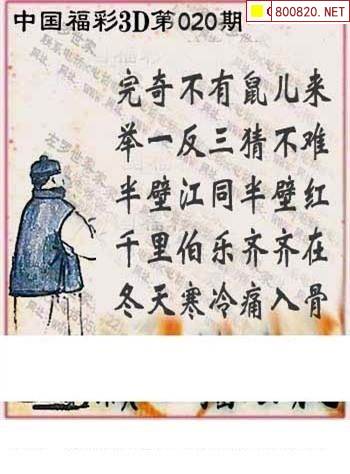 中国福彩3D第020期
800820.NET
完奇不有鼠儿来
举一反三猜不难
半壁江同半壁红
千里伯乐齐齐在
冬天寒冷痛入骨